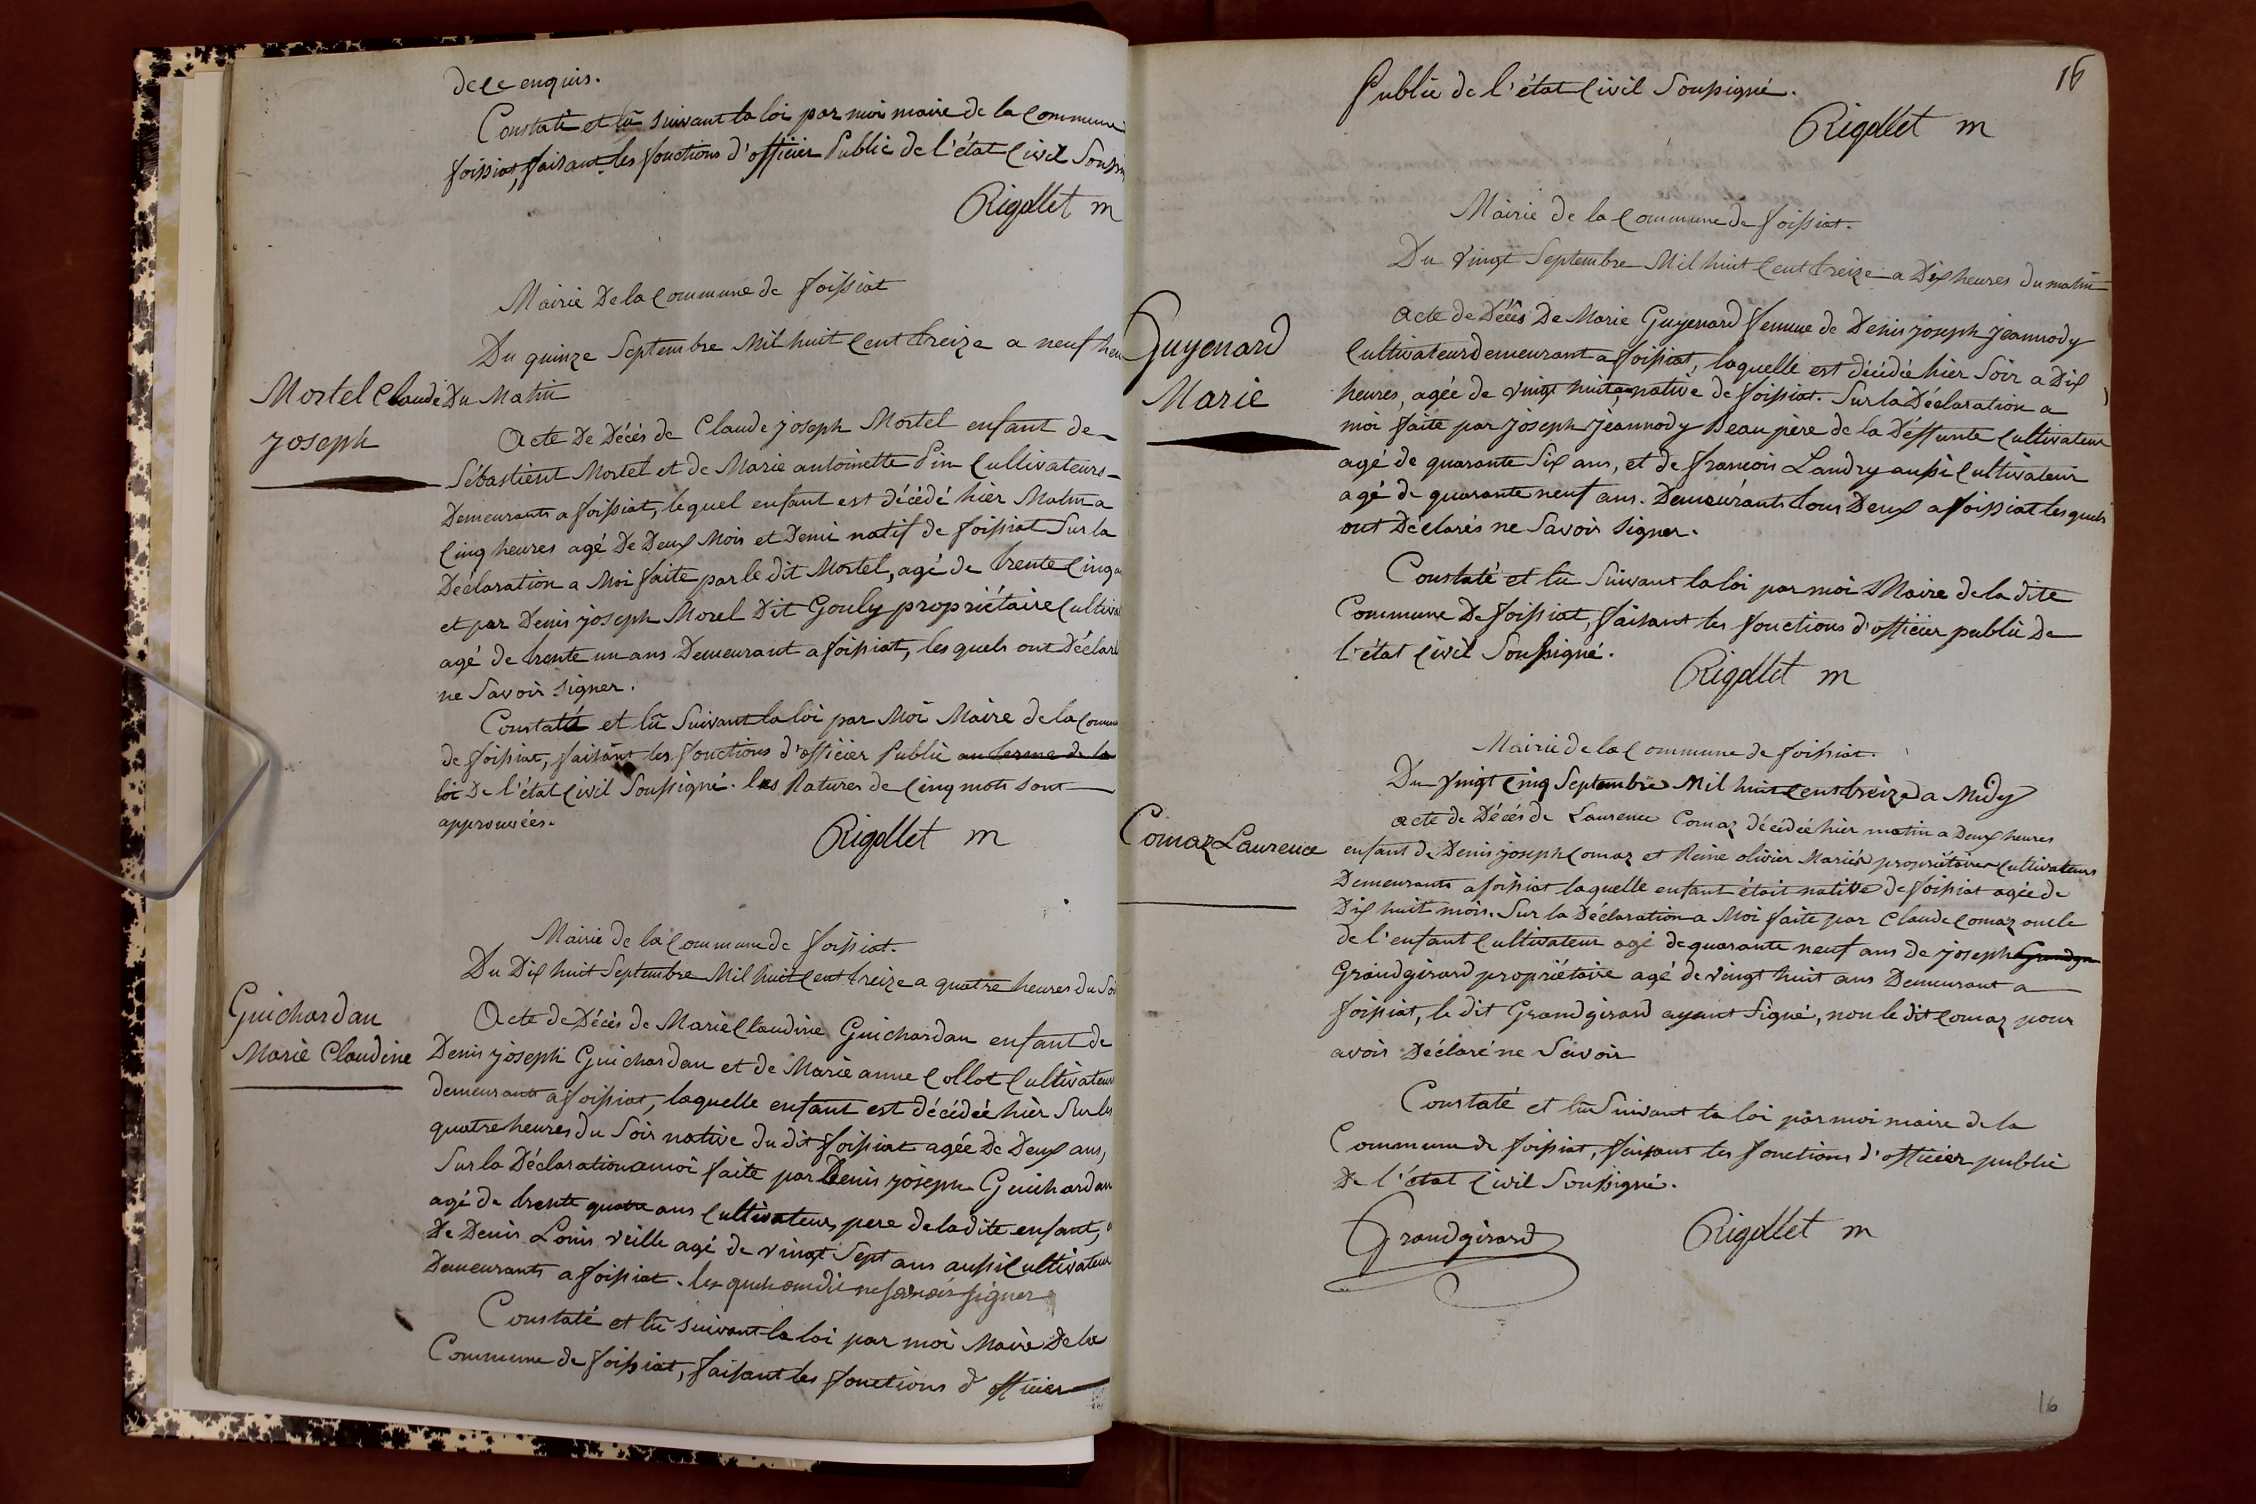 de ce enquis.
Constaté et lû suivant la loi par moi maire de la commune
foissiat, faisant les fonctions d'officier Public de l'état Civil Souss
Rigollet m
Mairie De la Commune de foissiat
Du quinze Septembre Mil huit Cent treize a neuf heu
Mortel Claude
joseph
Du Matin
Acte De Décès de Claude joseph Mortel enfant de
Sébastient Mortel et de Marie antoinette Pin Cultivateurs
Demeurants a foissiat, lequel enfant est décédé hier Matin a
Cinq heures agé De Deux Mois et Demi natif de foissiat Sur la
Déclaration a Moi faite par le dit Mortel, agé de trente Cinq a
et par Denis joseph Morel Dit Gouly propriétaire Cultivat
agé de trente un ans Demeurant a foissiat, les quels ont Déclaré
ne Savoir Signer.
Constaté et lû Suivant la loi par Moi Maire de la Commu
de foissiat, faisant les fonctions d'officier Public au terme de la
loi De l'état Civil Soussigné. les Ratures de Cinq mots sont
approuvées.
Rigollet m
Mairie de la Commune de foissiat.
Du Dix huit Septembre Mil huit Cent treize a quatre heures du Soi
Guichardan
Marie Claudine
Acte de Décès de Marie Claudine Guichardan enfant de
Denis joseph Guichardan et de Marie anne Collot Cultivateurs
demeurants a foissiat, laquelle enfant est décédée hier Sur les
quatre heures du Soir native du dit foissiat agée De Deux ans,
Sur la Déclaration a moi faite par Denis joseph Guichardan
agé de trente quatre ans Cultivateur, pere de la dite enfant,
De Denis Louis Veille agé de vingt Sept ans aussi Cultivateur
Demeurants a foissiat. les quels ont dit ne savoir signer
Constaté et lû suivant la loi par moi Maire De la
Commune de foissiat, faisant les fonctions d'officier
16
Public de l'état Civil Soussigné.
Rigollet m
Mairie de la Commune de foissiat.
Du Vingt Septembre Mil huit Cent treize a Dix heures du matin
Guyenard
Marie
Acte de Décès De Marie Guyenard femme de Denis joseph jeannody
Cultivateur demeurant a foissiat, laquelle est décédée hier Soir a Dix
heures, agée de vingt huit ans native de foissiat. Sur la Déclaration a
moi faite par joseph jeannody Beau père de la Deffunte Cultivateur
agé de quarante Six ans, et de françois Landry aussi Cultivateur
agé de quarante neuf ans. Demeurants tous Deux a foissiat lesquels
ont Déclarés ne Savoir Signer.
Constaté et lû Suivant la loi par moi Maire de la dite
Commune De foissiat, faisant les fonctions d'officier public De
l'état Civil Soussigné.
Rigollet m
Mairie de la Commune de foissiat.
Du Vingt Cinq Septembre Mil huit Cent treize a Midy
Comaz Laurence
Acte de Décés de Laurence Comaz décédée hier matin a Deux heures
enfant de Denis joseph Comaz et Reine olivier Mariés propriétaires Cultivateurs
Demeurants a foissiat laquelle enfant était native de foissiat agée de
Dix huit mois. Sur la Déclaration a Moi faite par Claude Comaz oncle
de l'enfant Cultivateur agé de quarante neuf ans de joseph
Grandgirard propriétaire agé de vingt huit ans Demeurant a
foissiat, le dit Grandgirard ayant Signé, non le dit Comaz pour
avoir Déclaré ne Savoir
Constaté et lû Suivant la loi par moi maire de la
Commune de foissiat, faisant les fonctions d'officier public
De l'état Civil Soussigné.
Grandgirard
Rigollet m
16